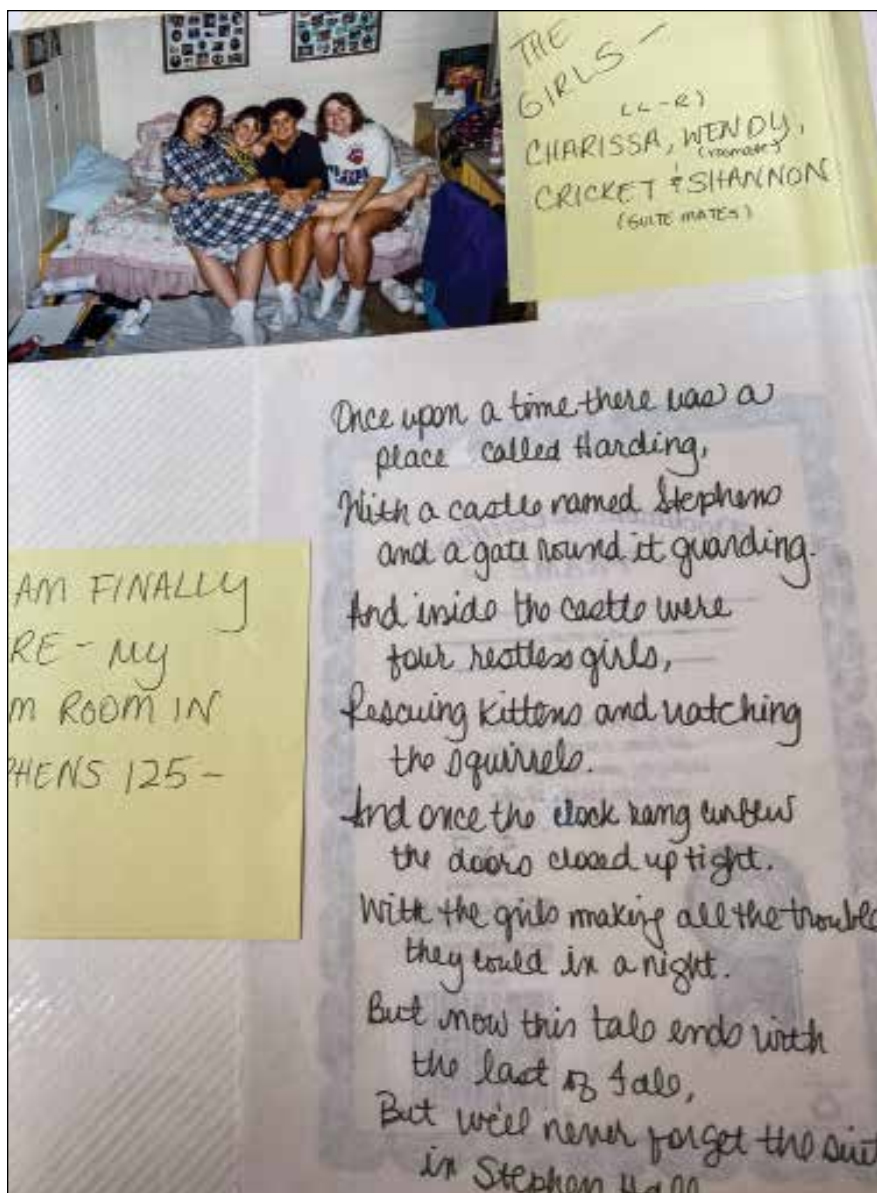 THE
GIRLS -
(L-R)
CHARISSA, WENDY,
(roomate)
CRICKET & SHANNON
(SUITE MATES)
AM FINALLY
RE - MY
M ROOM IN
PHENS 125 -
Once upon a time there was a
place called Harding,
With a castle named Stephens
and a gate round it guarding.
And inside the castle were
four restless girls,
Rescuing kittens and watching
the squirrels.
And once the clock rang curfew
the doors closed up tight.
With the girls making all the trouble
they could in a night.
But now this tale ends with
the last of fall,
But we'll never forget the suit
in Stephen Hall